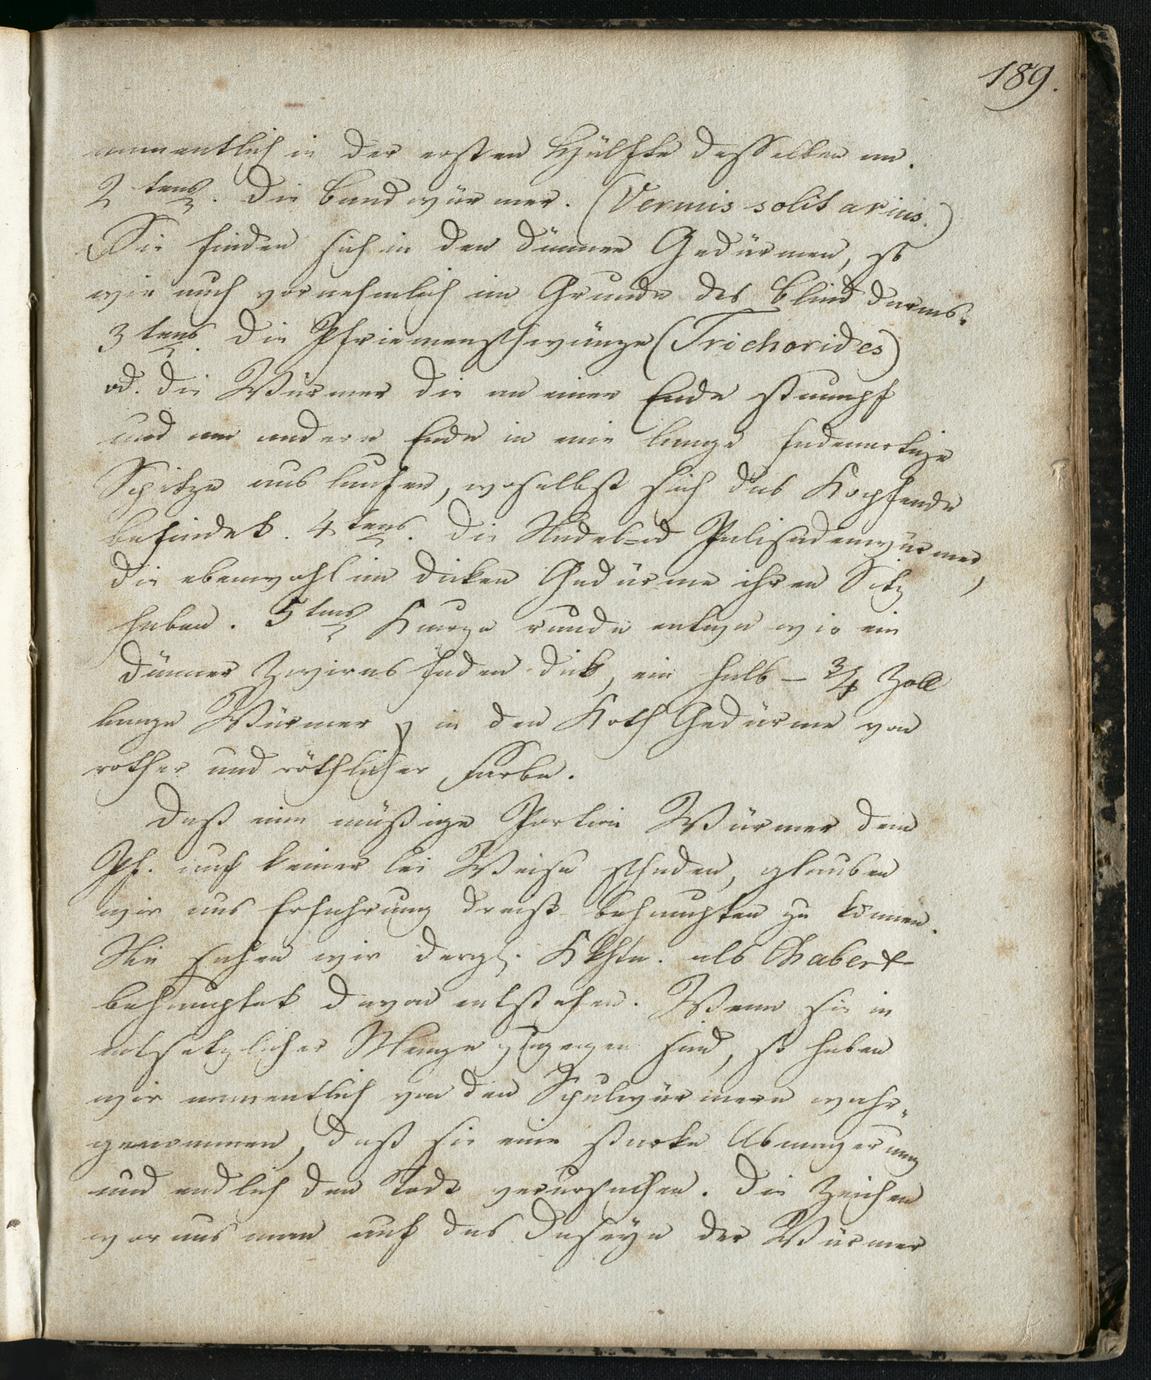 189.
namentlich in der ersten Hälfte desselben an.
2 tens. Die Bandwürmer. (Vermis solitarius.)
Sie finden sich in den dünnen Gedärmen, so
wie auch vornehmlich im Grunde des Blinddarms.
3 tens. Die Pfriemenschwänze (Trichorides)
od. die Würmer die an einen Ende stumpf
und am andern Ende in eine lange fadenartige
Spitze auslaufen, woselbst sich das Kopfende
befindet. 4 tens. Die Nadel- od Palisadenwürmer,
die ebenwohl im dicken Gedärme ihren Sitz
haben. 5 tens Kurze runde etwa wie ein
dünner Zwirnsfaden dick, ein halb - 3/4 Zoll
lange Würmer, in den Koth Gedärme von
rother und röthlicher Farbe.
Daß eine mäßige Portion Würmer dem
Pf. auf keinerlei Weise schaden, glauben
wir aus Erfahrung dreist behaupten zu können.
Nie sahen wir dergl. Kkhtn. als Chabert
behauptet davon entstehen. Wenn sie in
entsetzlicher Menge zugegen sind, so haben
wir namentlich von den Spulwürmern wahr-
genommen, daß sie eine starke Abmagerung
und endlich den Tod verursachen. Die Zeichen
woraus man auf das Daseyn der Würmer